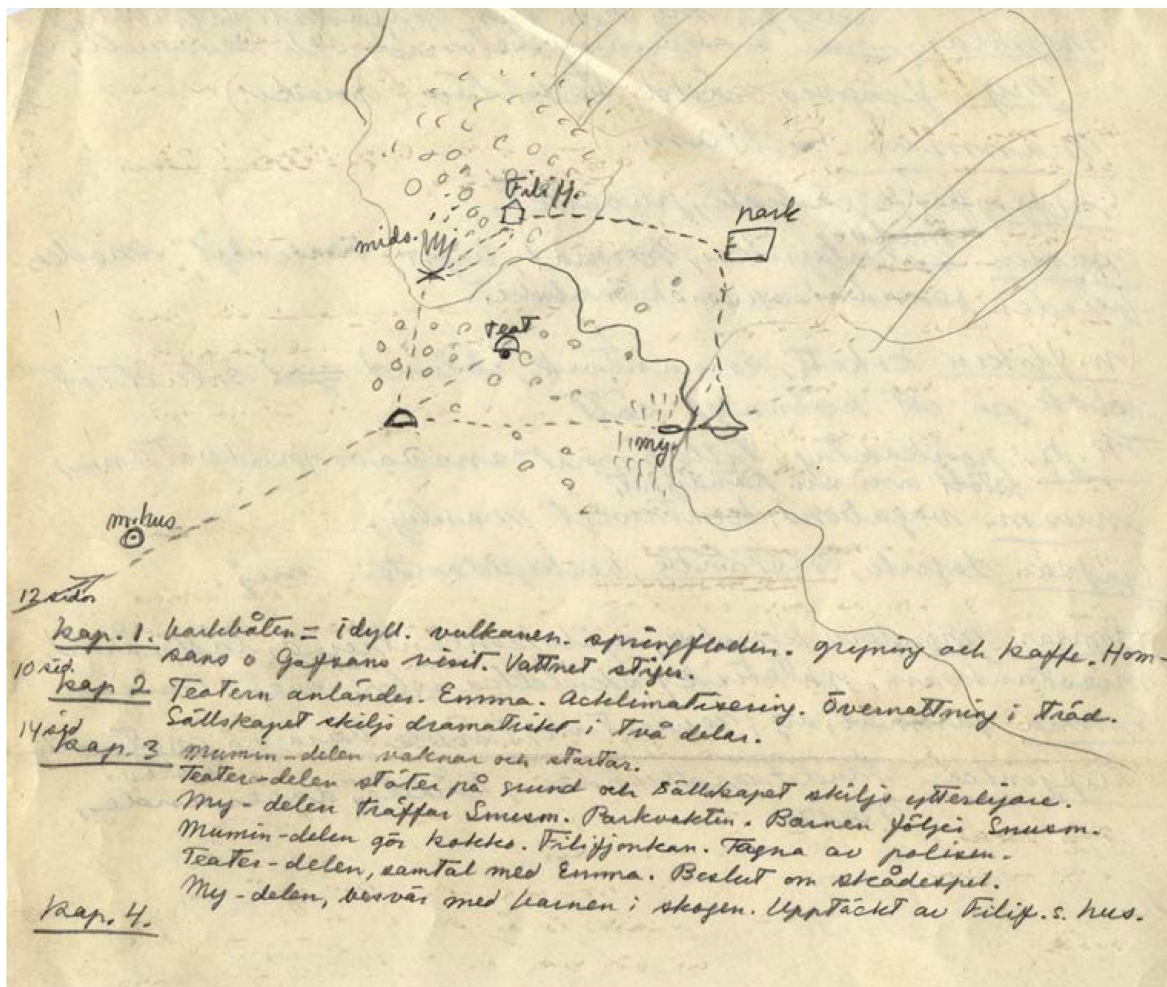 Filifj.
park
mids.
Teat
my.
m.hus
12 sidor
kap. 1. barkbåten = idyll. vulkanen. springfloden. gryning och kaffe. Hom-
sans o Gafsans visit. Vattnet stiger.
10 sid.
kap 2 Teatern anländer. Emma. Acklimatisering. Övernattning i träd.
Sällskapet skiljs dramatiskt i två delar.
14 sid
kap. 3 mumin-delen vaknar och startar.
Teater-delen stöter på grund och sällskapet skiljs ytterligare.
My-delen träffar Snusm. Parkvakten. Barnen följer Snusm.
Mumin-delen gör kokko. Filifjonkan. Tagna av polisen.
Teater-delen, samtal med Emma. Beslut om skådespel.
My-delen, besvär med barnen i skogen. Upptäckt av Filif.s. hus.
kap. 4.